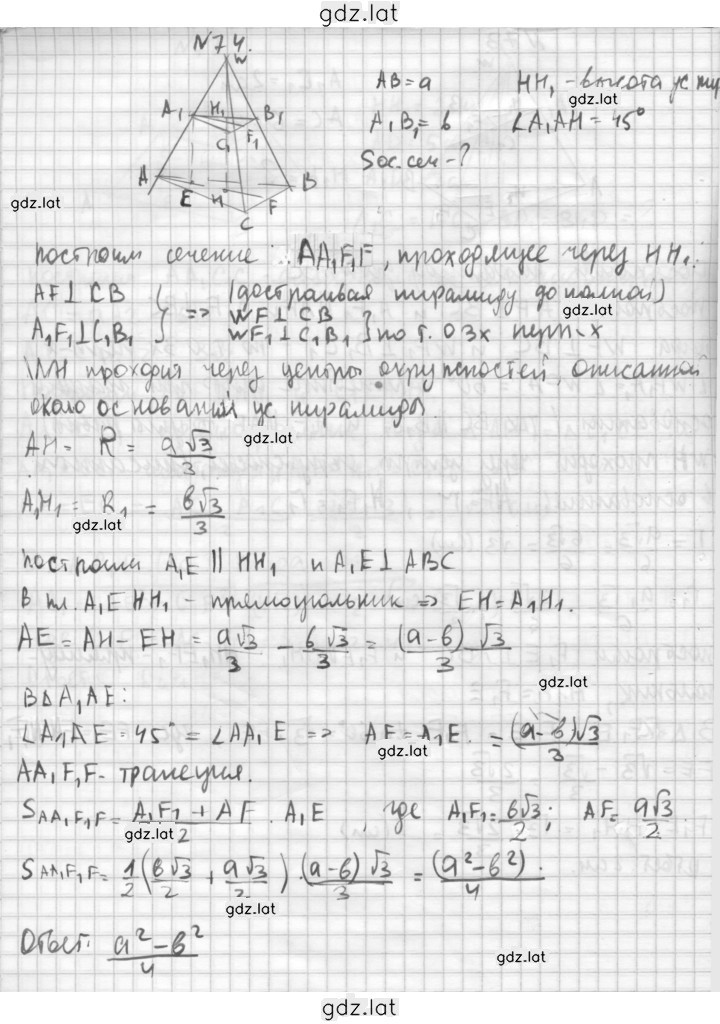 gdz.lat
N74.
W
AB = a
HH₁ - высота ус пир
gdz.lat
A₁ H₁ B₁
C₁ F₁
A₁B₁ = в
∠A₁AH = 45°
Sос.сеч - ?
A B
E H F
C
gdz.lat
построим сечение AA₁F₁F, проходящее через HH₁.
AF⊥CB } => (достраивая пирамиду до полной)
gdz.lat
A₁F₁⊥C₁B₁ } WF⊥CB
WF₁⊥C₁B₁ } по т. о 3х перп-х
WH проходя через центры окружностей, описанной
около оснований ус пирамиды.
gdz.lat
AH = R = a√3/3
A₁H₁ = R₁ = в√3/3
gdz.lat
построим A₁E || HH₁ и A₁E⊥ABC
в пл. A₁EHH₁ - прямоугольник => EH = A₁H₁.
AE = AH - EH = a√3/3 - в√3/3 = (a-в)√3/3
gdz.lat
В∆A₁AE:
∠A₁AE = 45° = ∠AA₁E => AF = A₁E = (a-в)√3/3
gdz.lat
AA₁F₁F - трапеция.
S AA₁F₁F = A₁F₁ + AF/2 · A₁E, где A₁F₁ = в√3/2; AF = a√3/2
gdz.lat
S AA₁F₁F = 1/2 (в√3/2 + a√3/2) · (a-в)√3/3 = (a²-в²)/4.
gdz.lat
Ответ: a²-в²/4
gdz.lat
gdz.lat